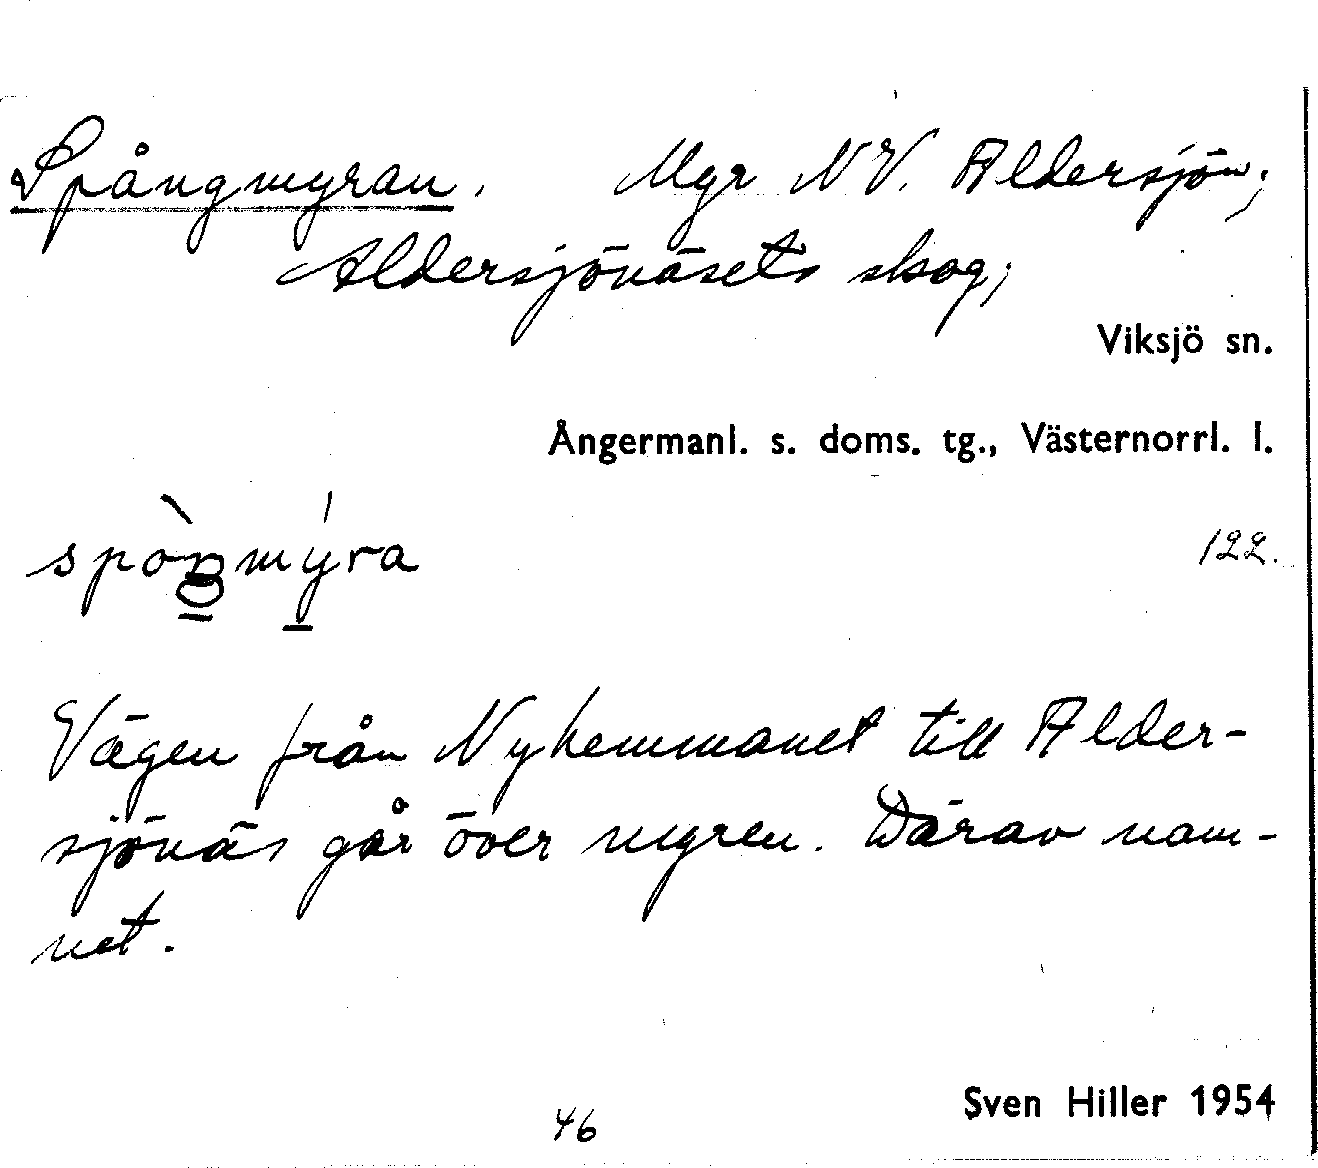 Spångmyran. Myr NV. Aldersjön;
Aldersjönäsets skog;
Viksjö sn.
Ångermanl. s. doms. tg., Västernorrl. l.
122.
Vägen från Nyhemmanet till Alder-
sjönäs går över myren. Därav nam-
net.
Sven Hiller 1954
46